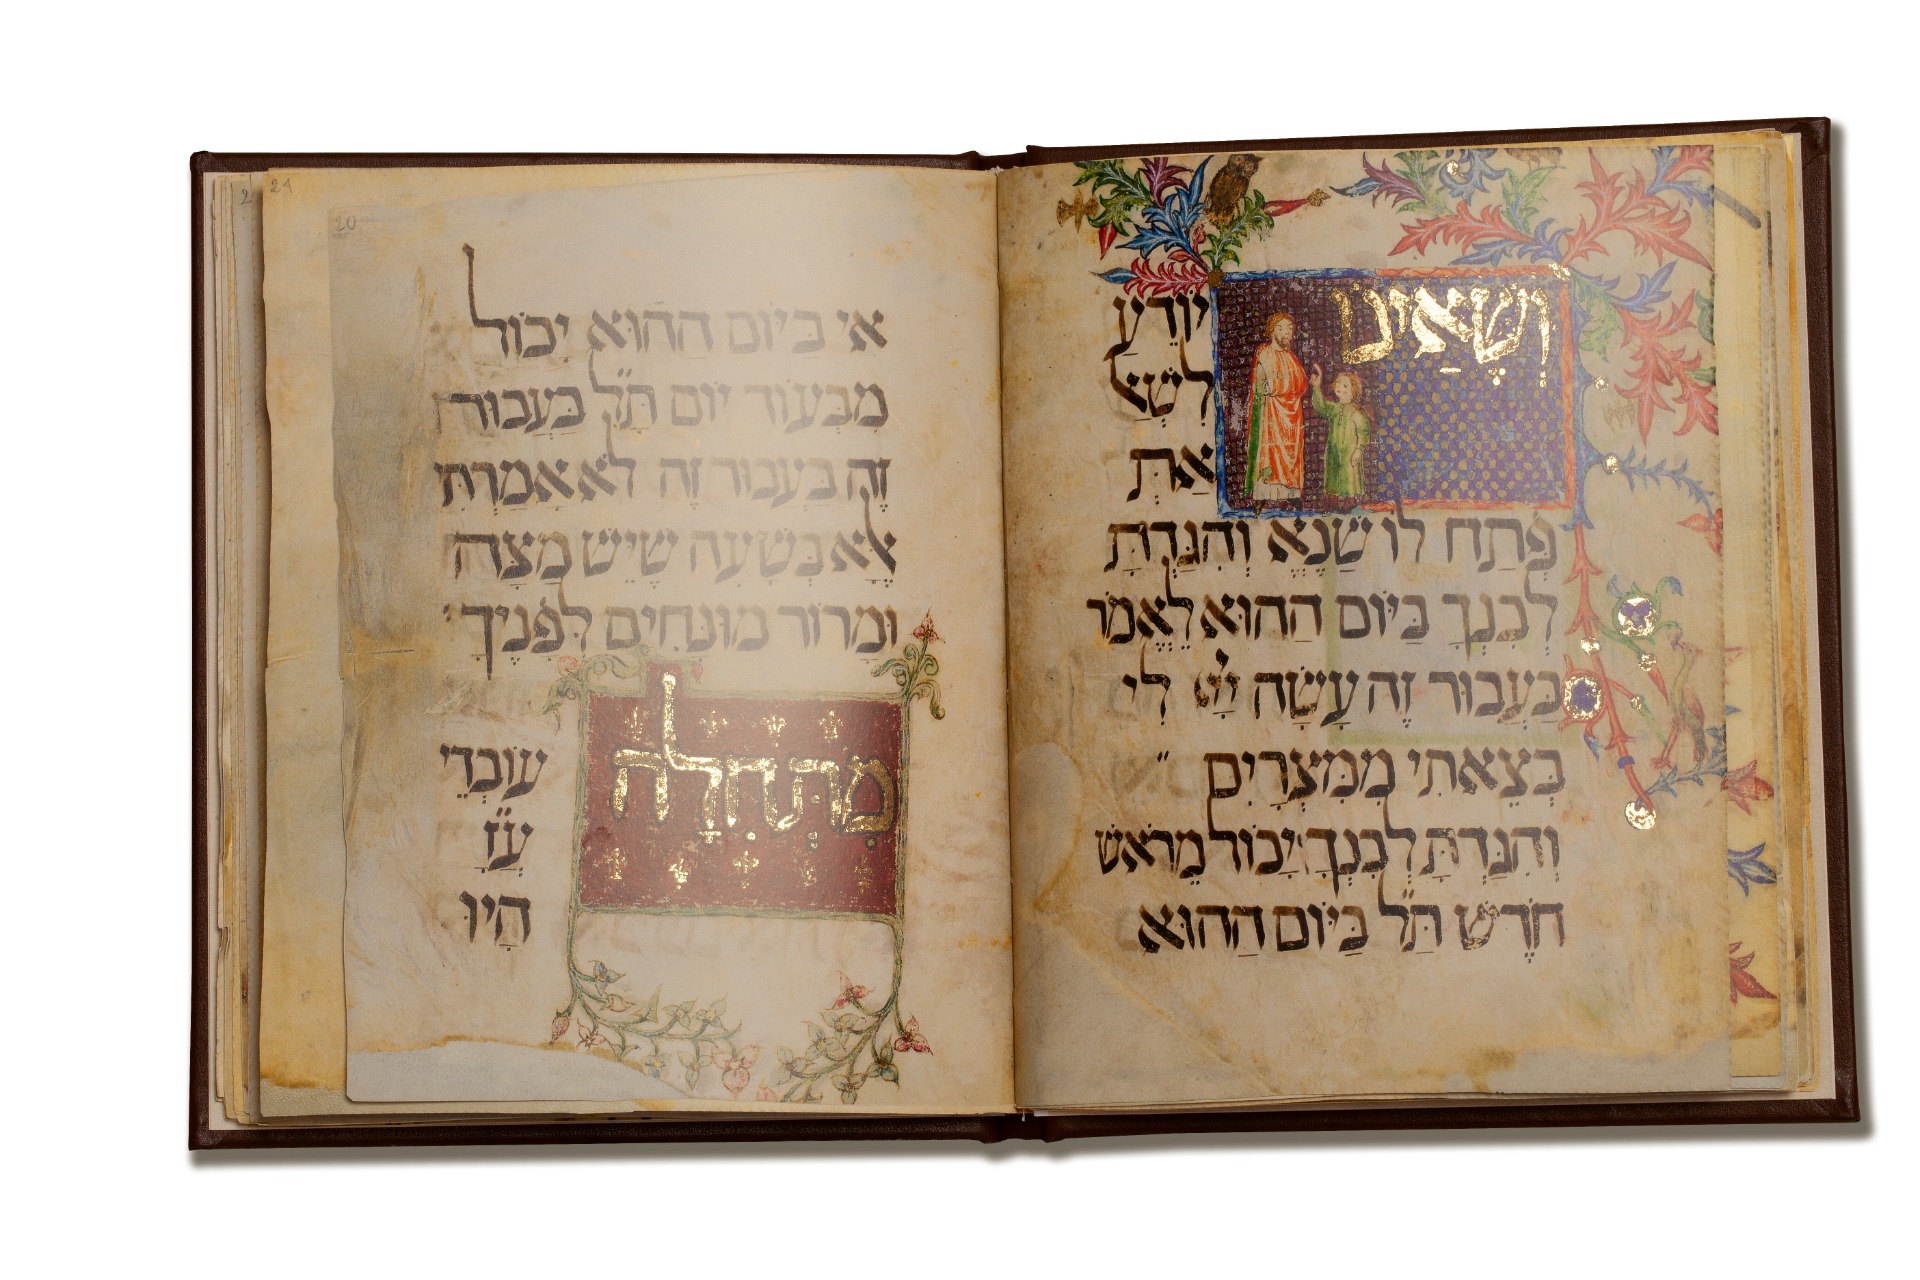 וְשֶׁאֵינוֹ
יוֹדֵעַ
לִשְׁאַל
אַתְּ
פְּתַח לוֹ שֶׁנֶּאֱ וְהִגַּדְתָּ
לְבִנְךָ בַּיּוֹם הַהוּא לֵאמֹר
בַּעֲבוּר זֶה עָשָׂה יְיָ לִי
בְּצֵאתִי מִמִּצְרַיִם
וְהִגַּדְתָּ לְבִנְךָ יָכוֹל מֵרֹאשׁ
חֹדֶשׁ תַּ״ל בַּיּוֹם הַהוּא
אי בַיּוֹם הַהוּא יָכוֹל
מִבְּעוֹד יוֹם תַּ״ל בַּעֲבוּר
זֶה בַּעֲבוּר זֶה לֹא אָמַרְתִּי
אֶלָּא בְּשָׁעָה שֶׁיֵּשׁ מַצָּה
וּמָרוֹר מוּנָּחִים לְפָנֶיךָ
מִתְּחִלָּה
עוֹבְדֵי
עֲ״זָ
הָיוּ
20
21
2